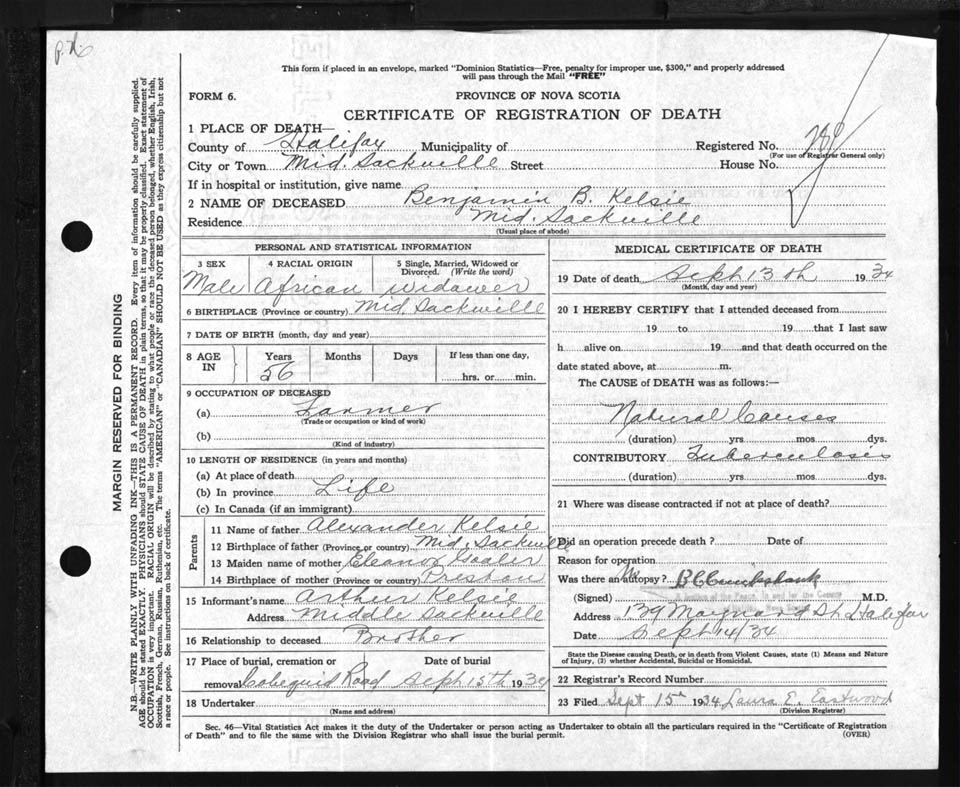 This form if placed in an envelope, marked "Dominion Statistics—Free, penalty for improper use, $300," and properly addressed
will pass through the Mail "FREE"
FORM 6.
PROVINCE OF NOVA SCOTIA
CERTIFICATE OF REGISTRATION OF DEATH
1 PLACE OF DEATH—
County of Halifax Municipality of Registered No.
(For use of Registrar General only)
City or Town Mid. Sackville Street House No.
If in hospital or institution, give name
2 NAME OF DECEASED Benjamin B. Kelsie
Residence Mid. Sackville
(Usual place of abode)
PERSONAL AND STATISTICAL INFORMATION
3 SEX 4 RACIAL ORIGIN 5 Single, Married, Widowed or
Divorced. (Write the word)
Male African widower
6 BIRTHPLACE (Province or country) Mid. Sackville
7 DATE OF BIRTH (month, day and year)
8 AGE IN Years Months Days If less than one day,
56 hrs. or min.
9 OCCUPATION OF DECEASED
(a) Farmer
(Trade or occupation or kind of work)
(b)
(Kind of industry)
10 LENGTH OF RESIDENCE (in years and months)
(a) At place of death
(b) In province Life
(c) In Canada (if an immigrant)
Parents
11 Name of father Alexander Kelsie
12 Birthplace of father (Province or country) Mid. Sackville
13 Maiden name of mother Eleanor
14 Birthplace of mother (Province or country) Preston
15 Informant's name Arthur Kelsie
Address Middle Sackville
16 Relationship to deceased Brother
17 Place of burial, cremation or Date of burial
removal Cobequid Road Sept 15th 1934
18 Undertaker
(Name and address)
MEDICAL CERTIFICATE OF DEATH
19 Date of death Sept 13th 1934
(Month, day and year)
20 I HEREBY CERTIFY that I attended deceased from
19 to 19 that I last saw
h alive on 19 and that death occurred on the
date stated above, at m.
The CAUSE of DEATH was as follows:—
Natural Causes
(duration) yrs. mos. dys.
CONTRIBUTORY Tuberculosis
(duration) yrs. mos. dys.
21 Where was disease contracted if not at place of death?
Did an operation precede death? Date of
Reason for operation
Was there an autopsy? No
(Signed) M.D.
Address 139 Maynard St. Halifax
Date Sept 14/34
State the Disease causing Death, or in death from Violent Causes, state (1) Means and Nature
of Injury, (2) whether Accidental, Suicidal or Homicidal.
22 Registrar's Record Number
23 Filed Sept 15th 1934 Laura E. Eastwood
(Division Registrar)
Sec. 46—Vital Statistics Act makes it the duty of the Undertaker or person acting as Undertaker to obtain all the particulars required in the "Certificate of Registration
of Death" and to file the same with the Division Registrar who shall issue the burial permit.
(OVER)
MARGIN RESERVED FOR BINDING
N.B.—WRITE PLAINLY WITH UNFADING INK—THIS IS A PERMANENT RECORD. Every item of information should be carefully supplied.
AGE should be stated EXACTLY. PHYSICIANS should STATE CAUSE OF DEATH in plain terms, so that it may be properly classified. Exact statement of
OCCUPATION is very important. RACIAL ORIGIN will be described by stating to what people or race the deceased person belonged, whether English, Irish,
Scottish, French, German, Russian, Ruthenian, etc. The terms "AMERICAN" or "CANADIAN" SHOULD NOT BE USED as they express citizenship but not
a race or people. See instructions on back of certificate.